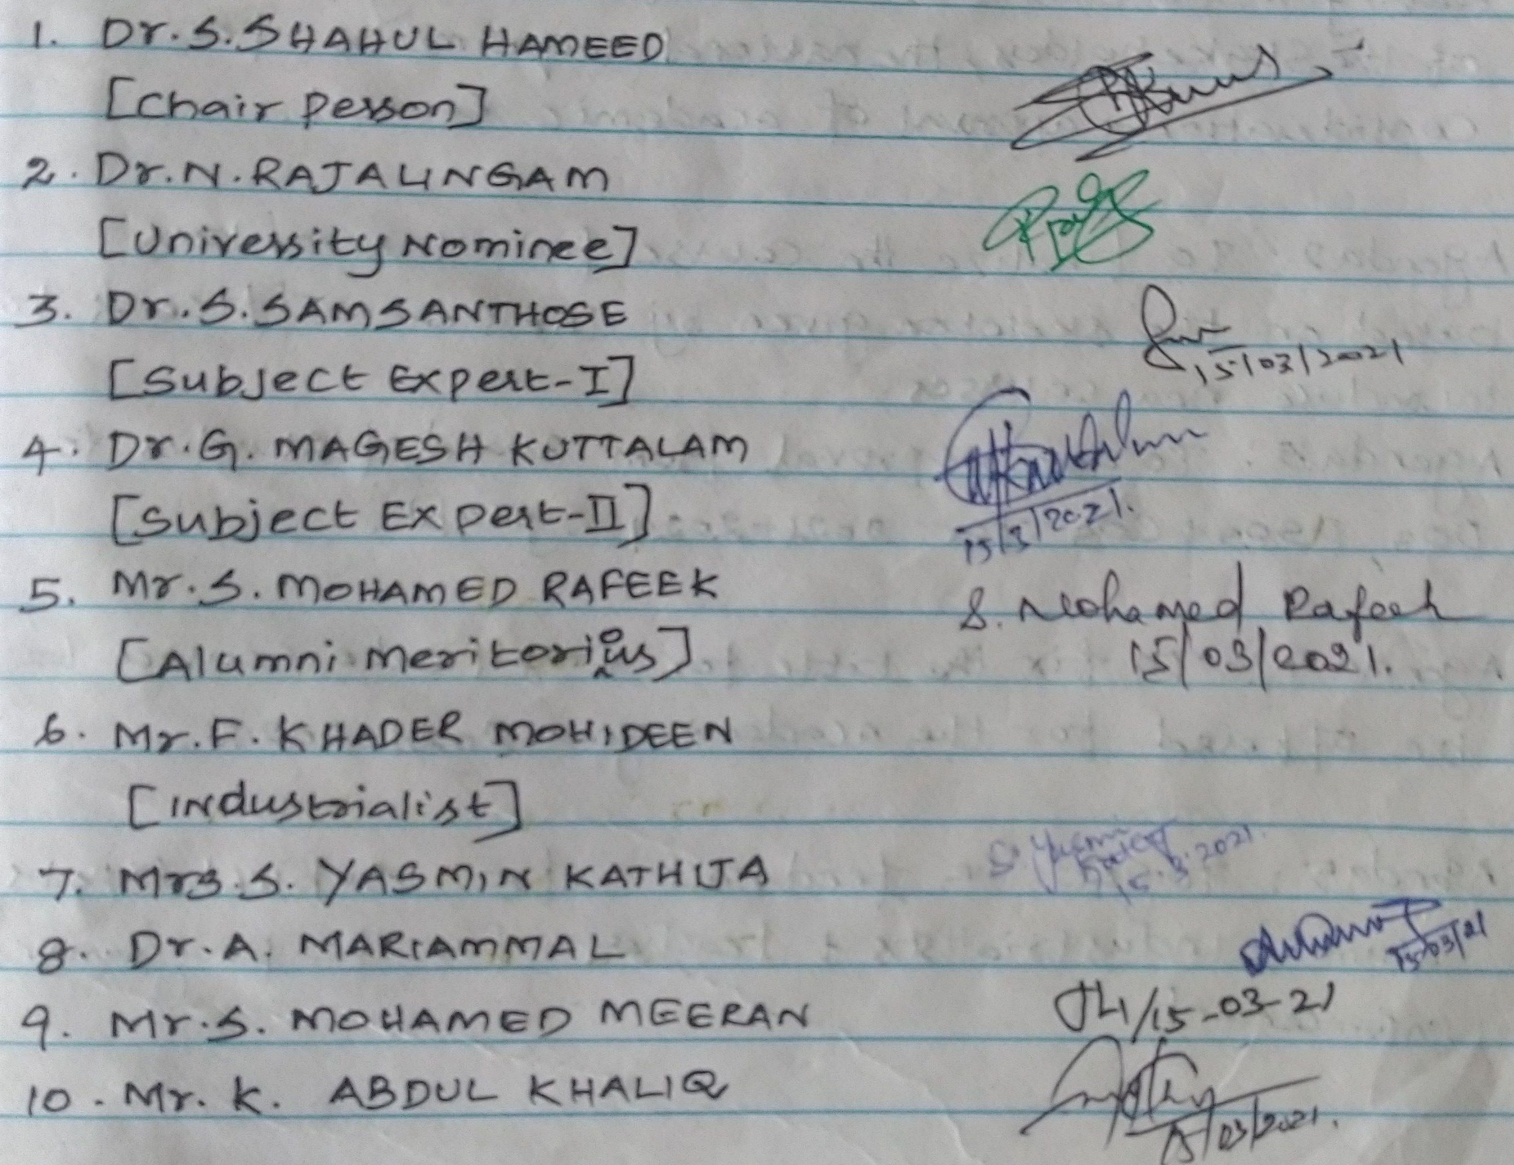 1. Dr. S. SHAHUL HAMEED
[Chair person]
2. Dr. N. RAJALINGAM
[University Nominee]
3. Dr. S. SAMSANTHOSE
15/03/2021
[Subject Expert-I]
4. Dr. G. MAGESH KUTTALAM
[Subject Expert-II]
15/3/2021.
5. Mr. S. MOHAMED RAFEEK
S. Mohamed Rafeek
[Alumni Meritorious]
15/03/2021.
6. Mr. F. KHADER MOHIDEEN
[Industrialist]
7. Mrs. S. YASMIN KATHIJA
S. Yasmin
15.3.2021.
8. Dr. A. MARIAMMAL
15/03/21
9. Mr. S. MOHAMED MEERAN
15-03-21
10. Mr. K. ABDUL KHALIQ
15/03/2021.